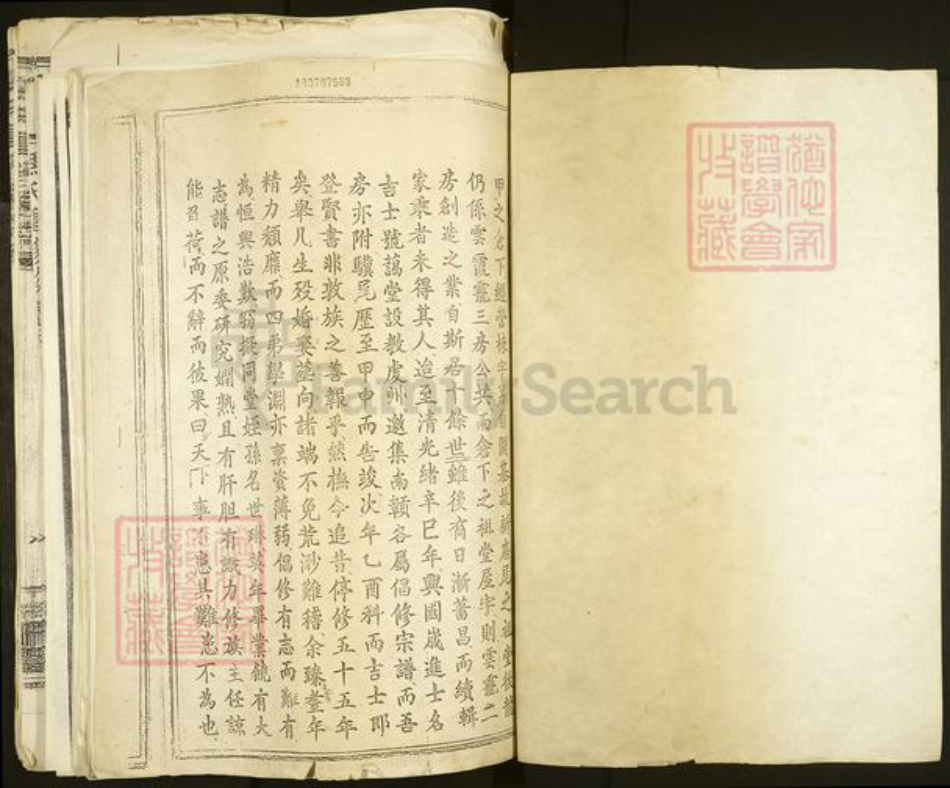 100707589
甲之倉下經營棟宇
仍係雲霞靄三房公共而倉下之祖堂屋宇則雲靄二
房創造之業自斯居十餘世雖後裔日漸蕃昌而續輯
家乘者未得其人迨至清光緒辛巳年興國歲進士名
吉士號藹堂設教虔州邀集南贛各屬倡修宗譜而吾
房亦附驥尾歷至甲申而告竣次年乙酉科而吉士即
登賢書非敦族之善報乎然撫今追昔停修五十五年
矣舉凡生歿婚娶葬向諸端不免荒渺難稽余臻耋年
精力頹靡而四弟學淵亦稟資薄弱倡修有志而難有
為恒興浩歎竊擬同堂姪孫名世琳英年畢業饒有大
志譜之原委研究嫻熟且有肝胆有識力修族主任諒
能負荷而不辭而彼果曰天下事不患其難患不為也
猶他家
譜學會
收藏
FamilySearch